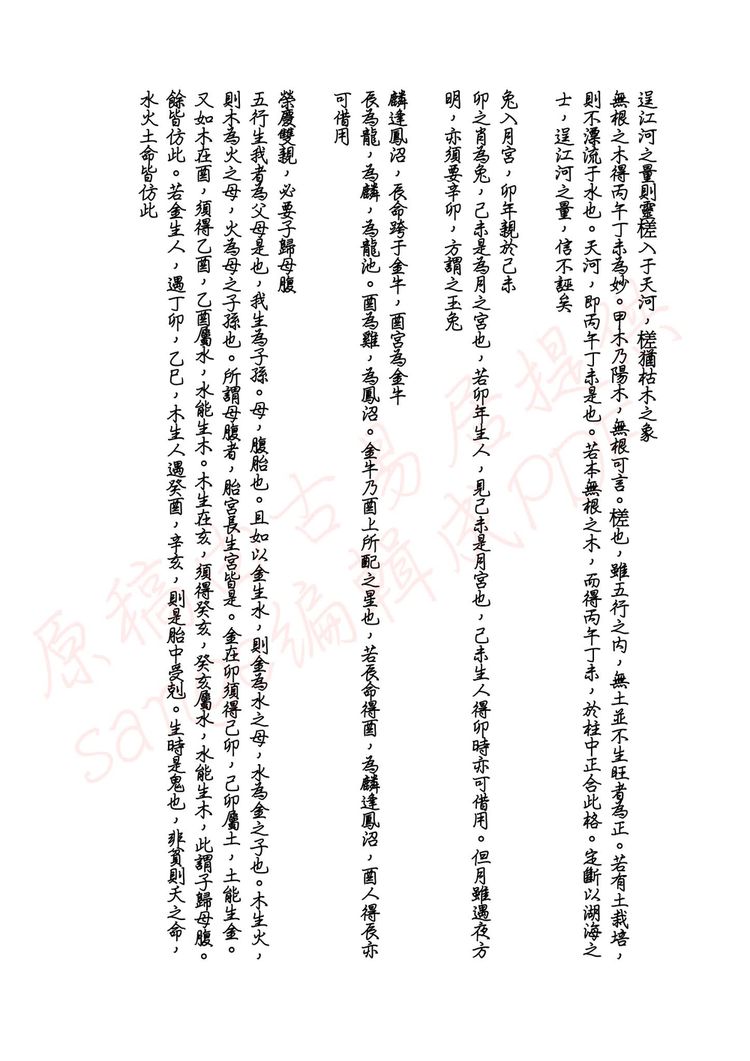 逞江河之量則靈槎入于天河，槎猶枯木之象
無根之木得丙午丁未為妙。甲木乃陽木，無根可言。槎也，雖五行之內，無土並不生旺者為正。若有土栽培，
則不漂流于水也。天河，即丙午丁未是也。若本無根之木，而得丙午丁未，於柱中正合此格。定斷以湖海之
士，逞江河之量，信不誣矣
兔入月宮，卯年親於己未
卯之肖為兔，己未是為月之宮也，若卯年生人，見己未是月宮也，己未生人得卯時亦可借用。但月雖遇夜方
明，亦須要辛卯，方謂之玉兔
麟逢鳳沼，辰命跨于金牛，酉宮為金牛
辰為龍，為麟，為龍池。酉為雞，為鳳沼。金牛乃酉上所配之星也，若辰命得酉，為麟逢鳳沼，酉人得辰亦
可借用
榮慶雙親，必要子歸母腹
五行生我者為父母是也，我生為子孫。母，腹胎也。且如以金生水，則金為水之母，水為金之子也。木生火，
則木為火之母，火為母之子孫也。所謂母腹者，胎宮長生宮皆是。金在卯須得己卯，己卯屬土，土能生金。
又如木在酉，須得乙酉，乙酉屬水，水能生木。木生在亥，須得癸亥，癸亥屬水，水能生木，此謂子歸母腹。
餘皆仿此。若金生人，遇丁卯，乙巳，木生人遇癸酉，辛亥，則是胎中受剋。生時是鬼也，非貧則夭之命，
水火土命皆仿此
原稿
古易居提供
sanny編輯成PDF